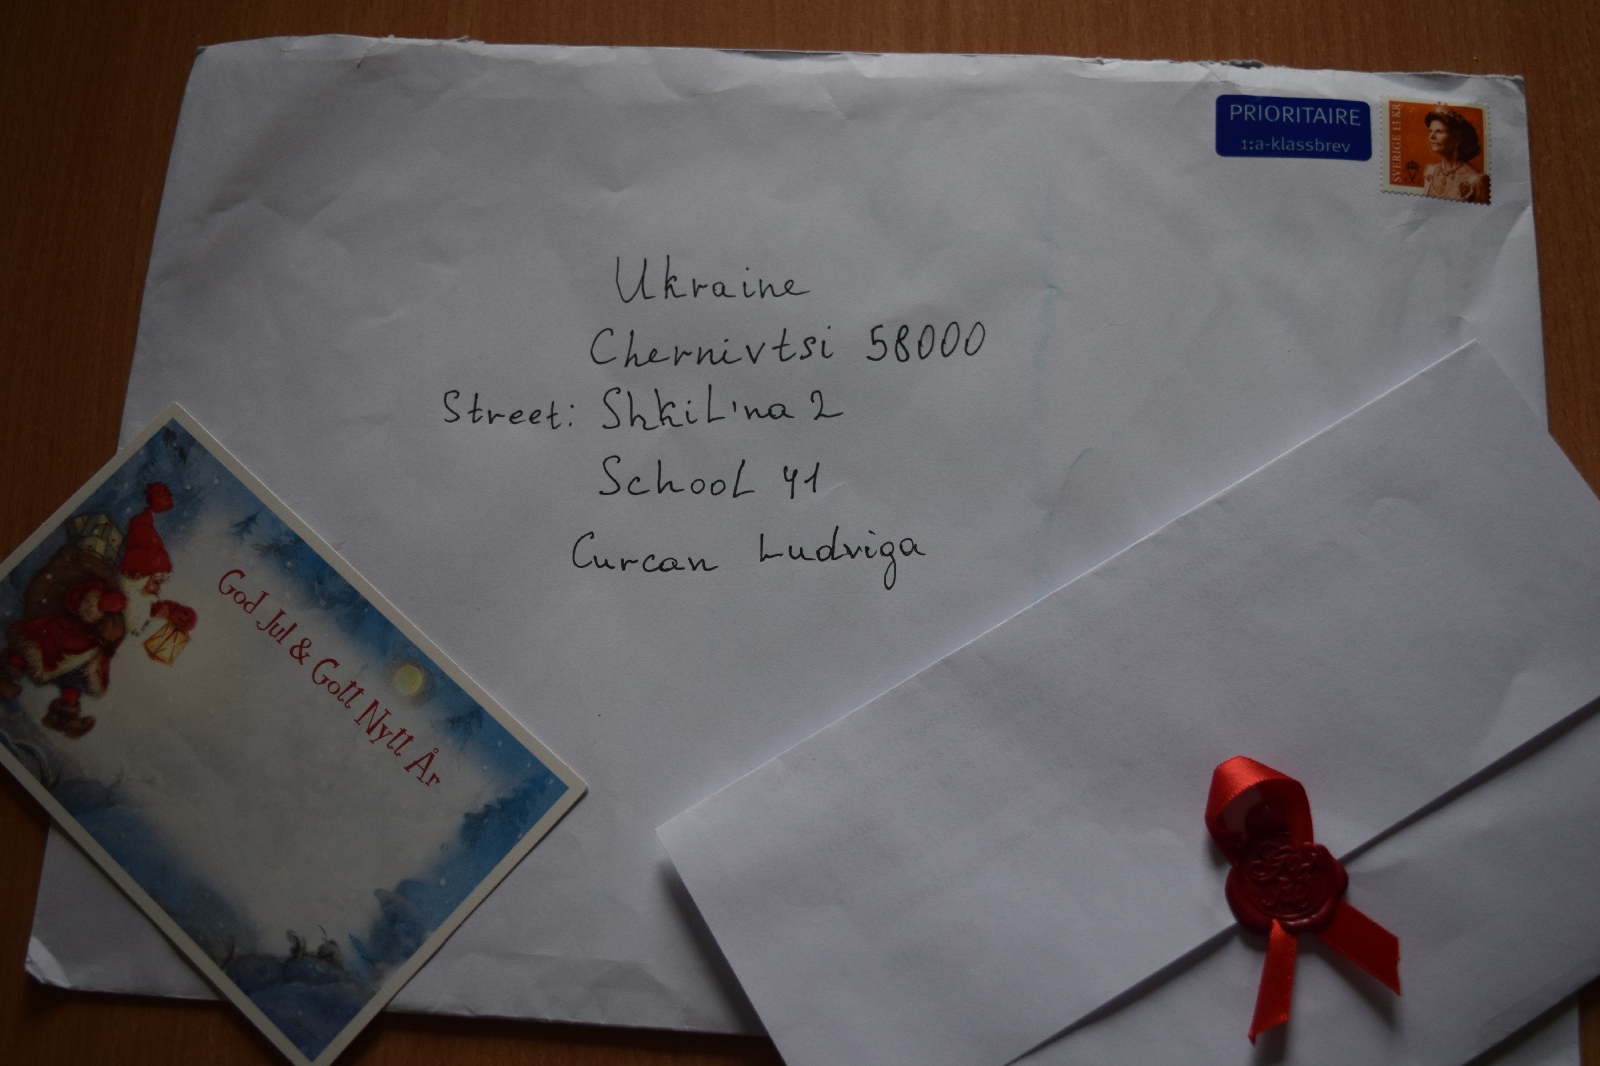 PRIORITAIRE
1:a-klassbrev
SVERIGE 13 KR
Ukraine
Chernivtsi 58000
Street: Shkil'na 2
School 41
Curcan Ludviga
God Jul & Gott Nytt År